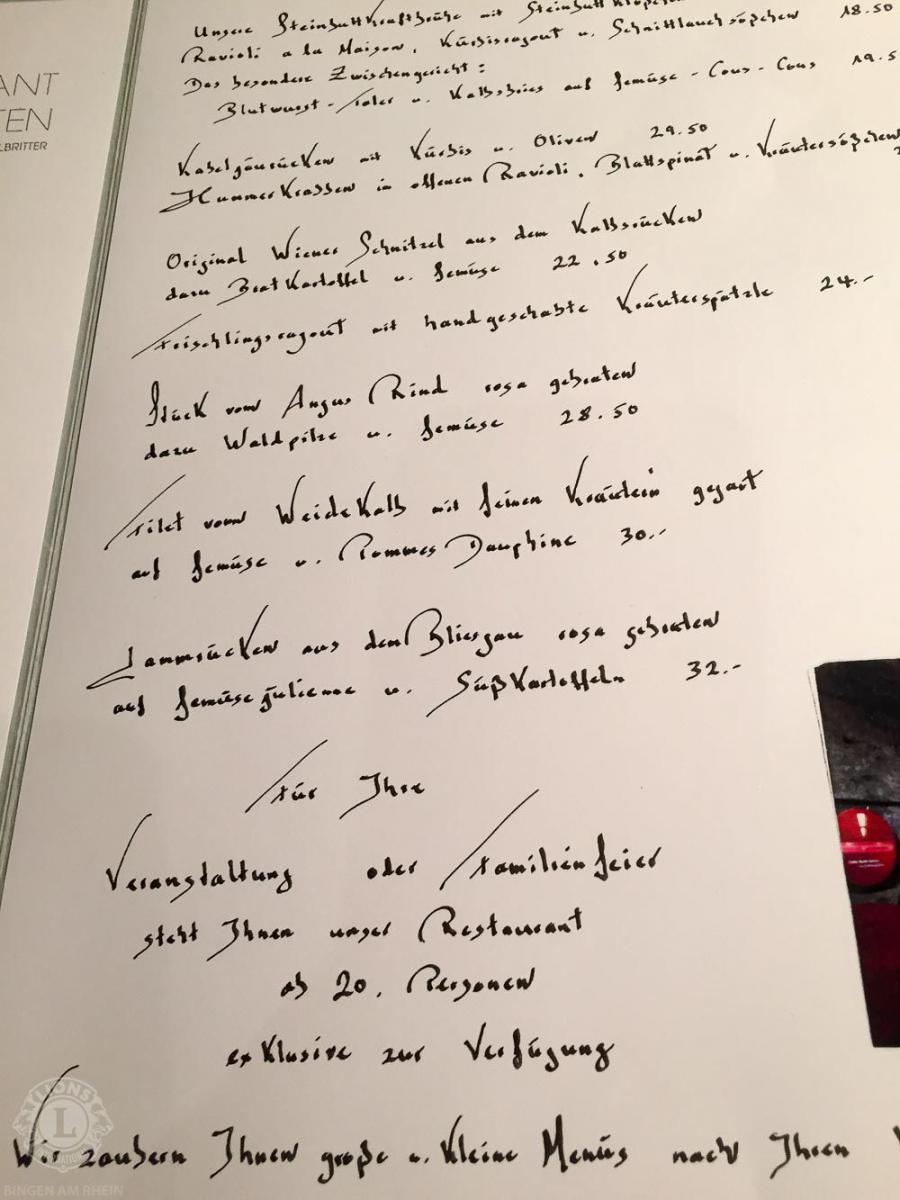 ANT
TEN
LBRITTER
Unsere Steinbuttkraftbrühe mit Steinbutt
Ravioli a la Maison, Kürbisragout u. Schnittlauchsößchen 18.50
Das besondere Zwischengericht:
Blutwurst- u. Kalbsbries auf Gemüse-Cous-Cous 19.5
Kabeljaurücken mit Kürbis u. Oliven 29.50
Hummerkrabben in offenen Ravioli, Blattspinat u. Kräutersößchen
Original Wiener Schnitzel aus dem Kalbsrücken
dazu Bratkartoffel u. Gemüse 22.50
Frischlingsragout mit handgeschabte Kräuterspätzle 24.-
Stück vom Angus Rind rosa gebraten
dazu Waldpilze u. Gemüse 28.50
Filet vom Weidekalb mit feinen Kräutern gegart
auf Gemüse u. Pommes Dauphine 30.-
Lammrücken aus den Bliesgau rosa gebraten
auf Gemüsejulienne u. Süßkartoffeln 32.-
Für Ihre
Veranstaltung oder Familienfeier
steht Ihnen unser Restaurant
ab 20. Personen
exklusive zur Verfügung
Wir zaubern Ihnen große u. kleine Menüs nach Ihren
LIONS
L
BINGEN AM RHEIN